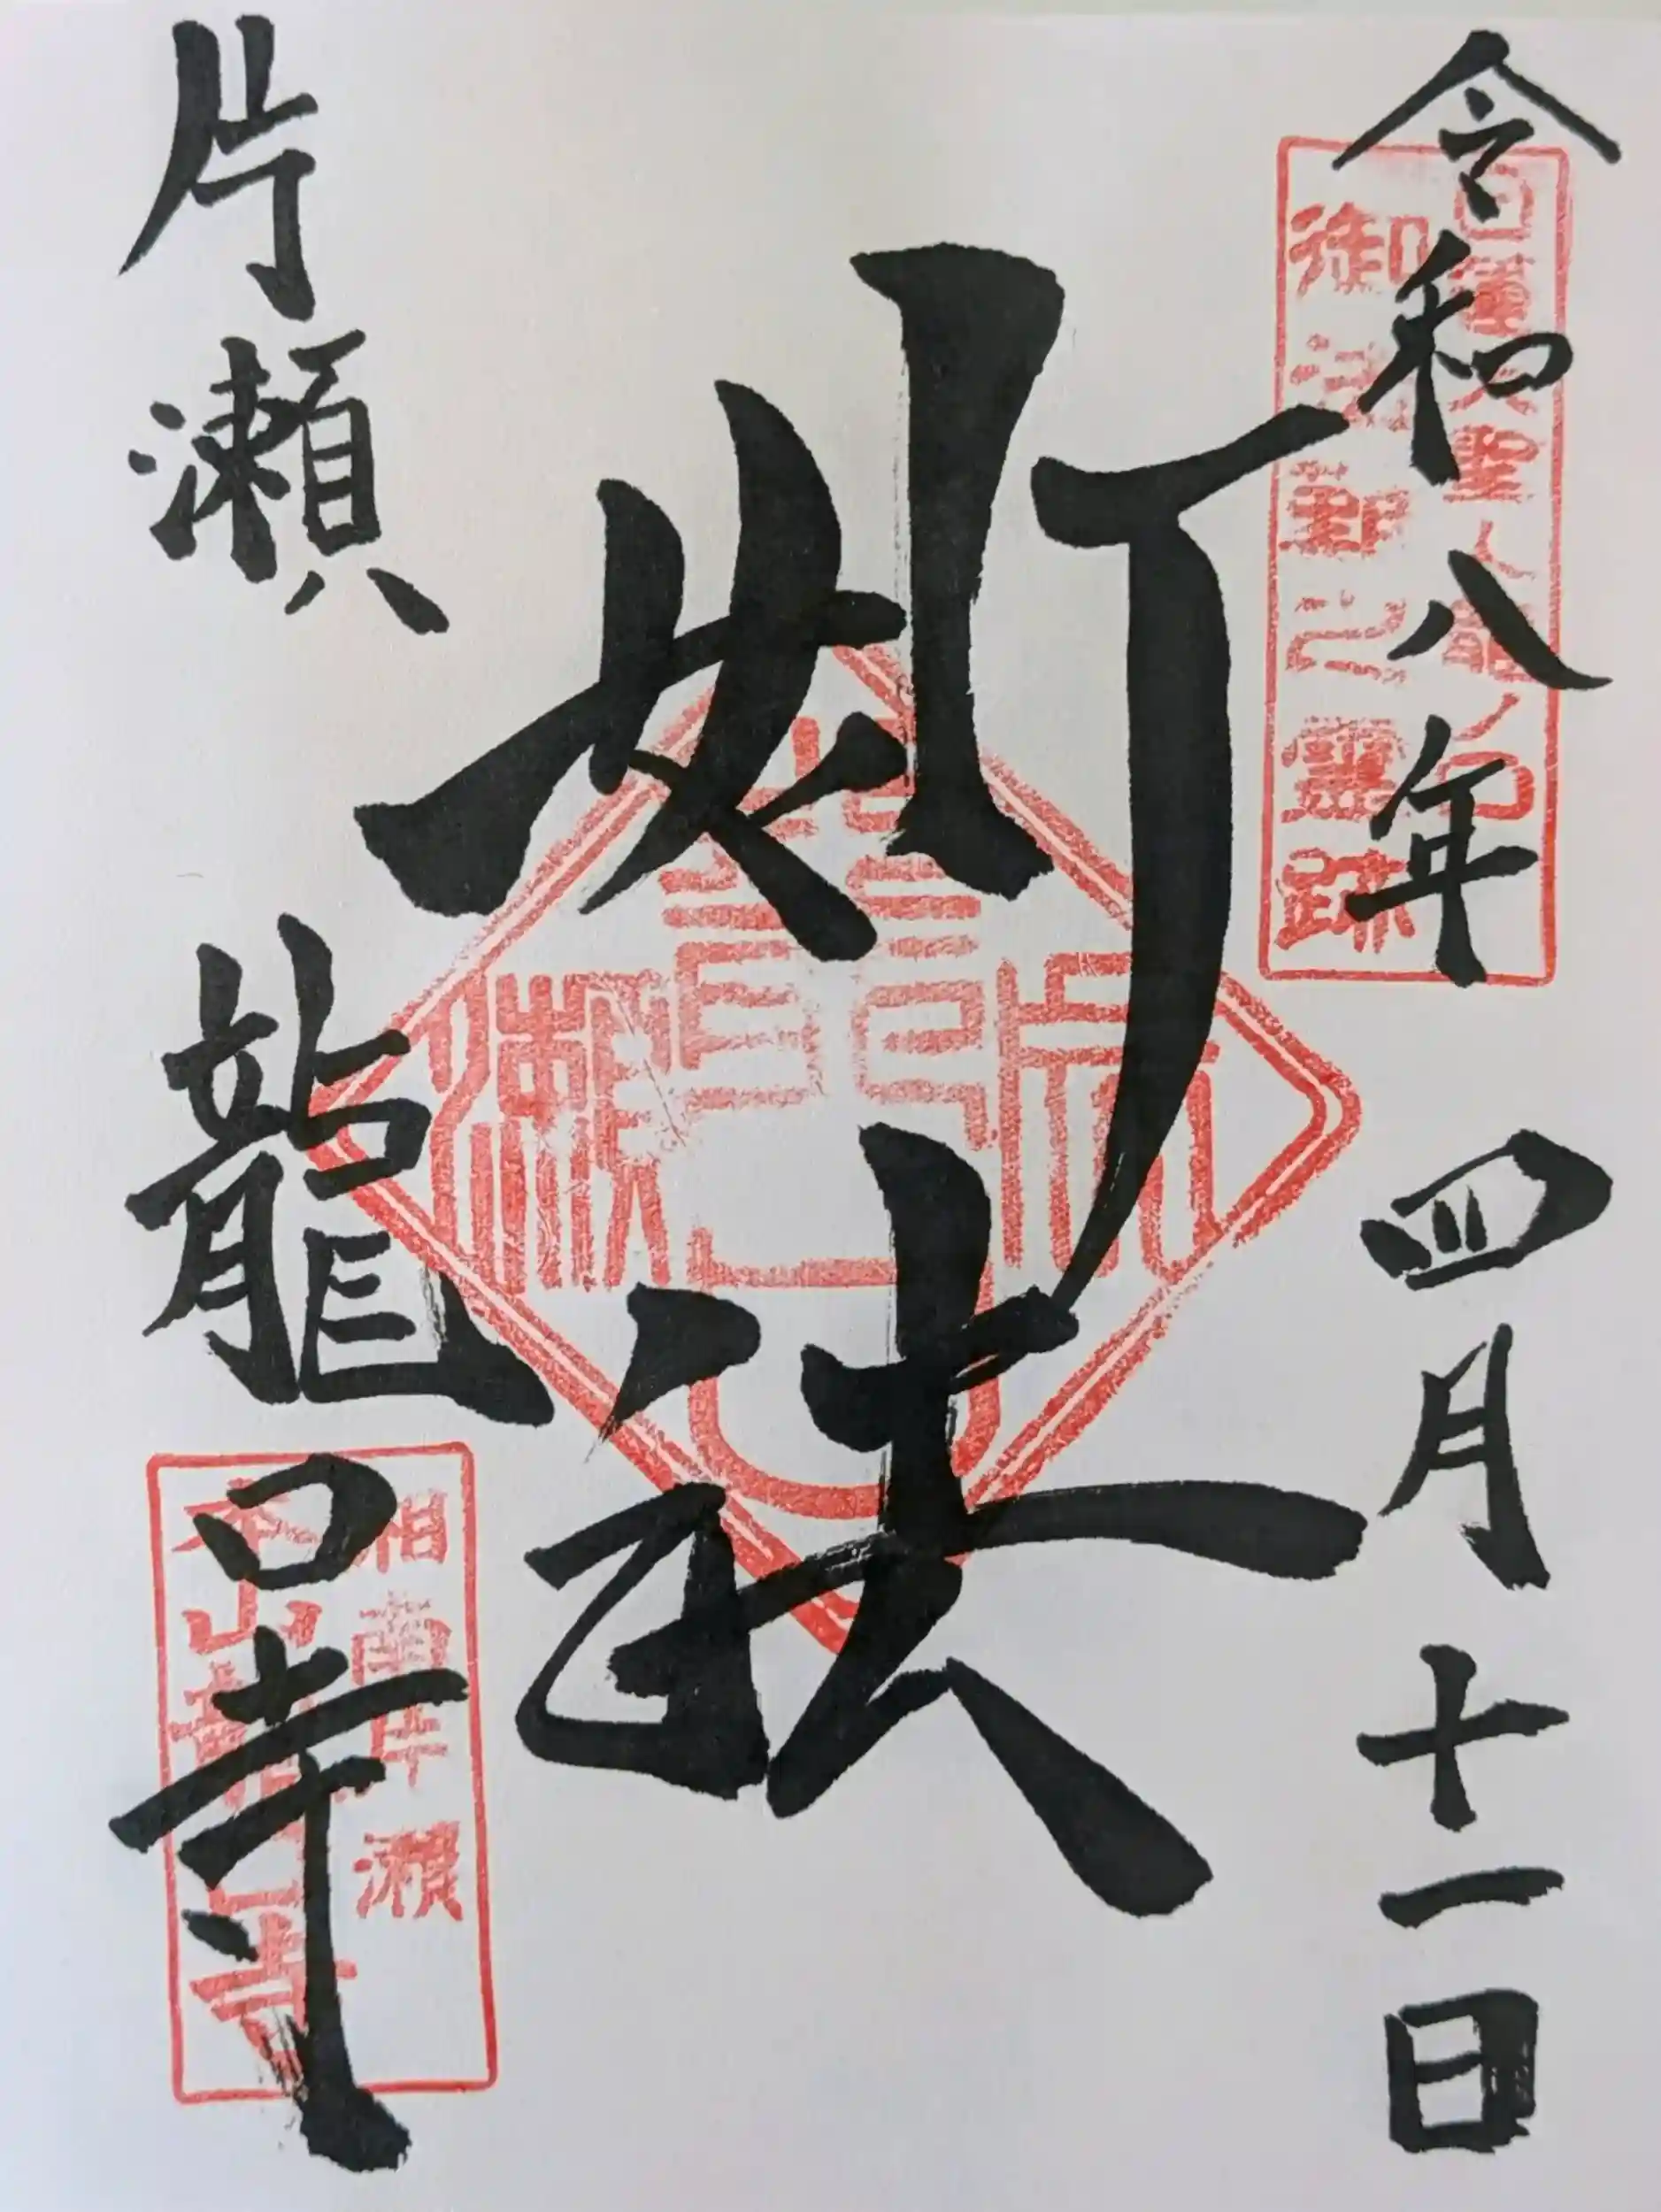 令和八年 四月十一日
日蓮大聖人龍ノ口
御法難之霊跡
妙法
片瀬 龍口寺
相南片瀬
本山龍口寺